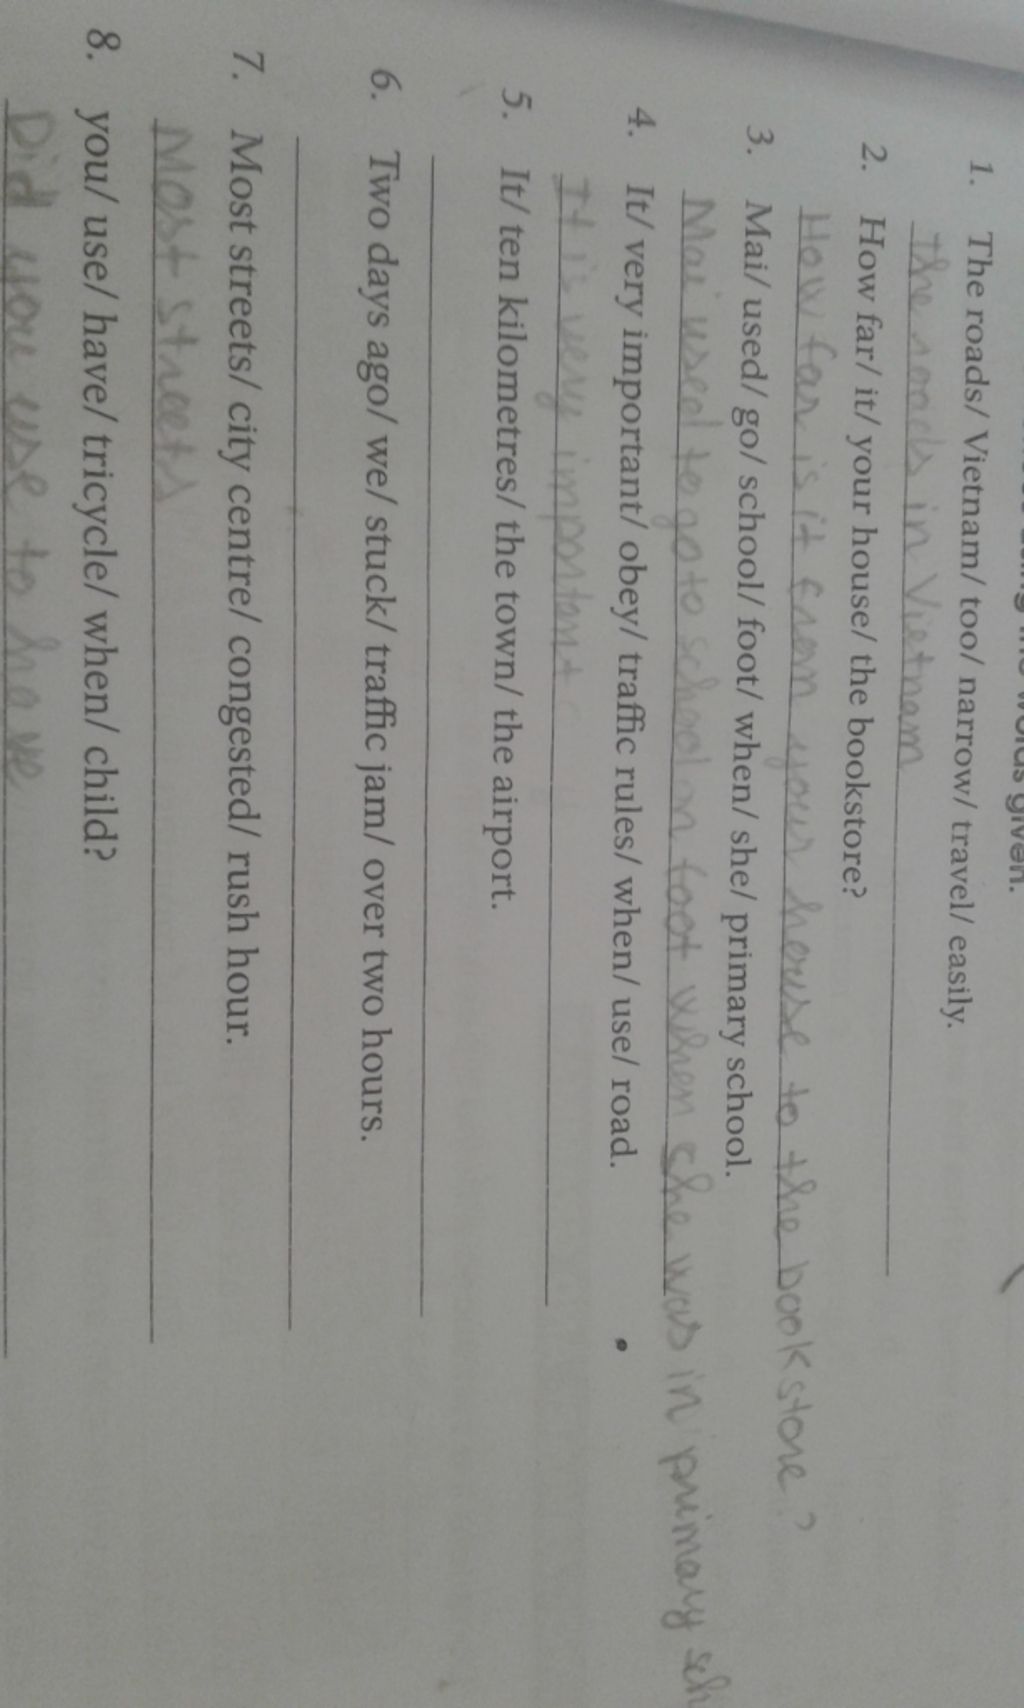 words given.
1. The roads/ Vietnam/ too/ narrow/ travel/ easily.
The roads in Vietnam
2. How far/ it/ your house/ the bookstore?
How far is it from your house to the bookstore?
3. Mai/ used/ go/ school/ foot/ when/ she/ primary school.
Mai used to go to school on foot when she was in primary sch
4. It/ very important/ obey/ traffic rules/ when/ use/ road.
It is very important
5. It/ ten kilometres/ the town/ the airport.
6. Two days ago/ we/ stuck/ traffic jam/ over two hours.
7. Most streets/ city centre/ congested/ rush hour.
Most streets
8. you/ use/ have/ tricycle/ when/ child?
Did you use to have